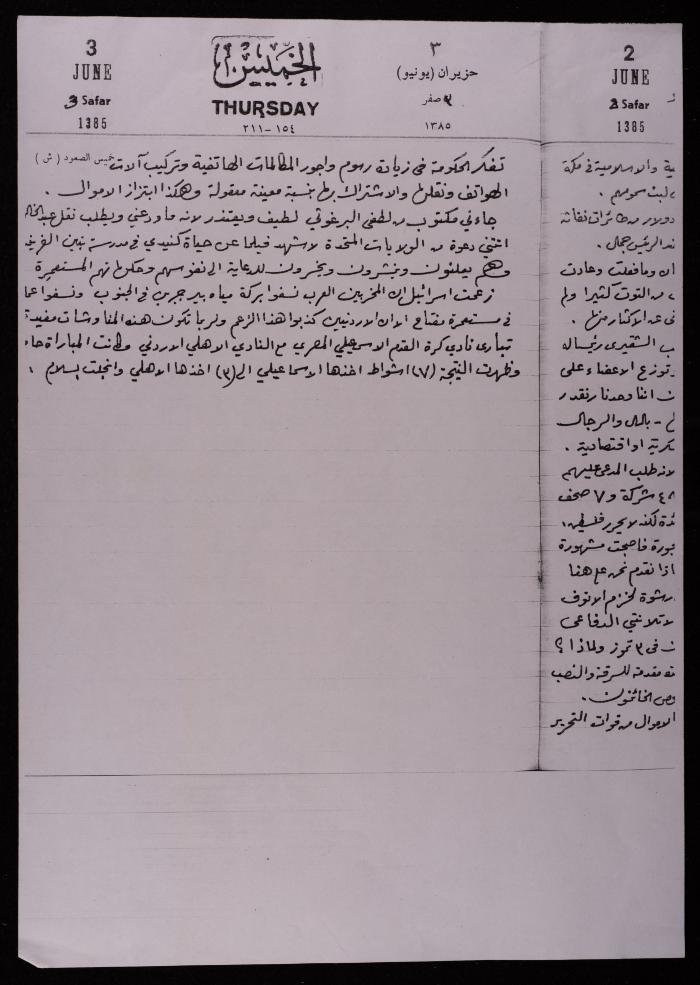 3
JUNE
3 Safar
1385
الخميس
THURSDAY
٢١١-١٥٤
٣
حزيران (يونيو)
صفر
١٣٨٥
خميس الصعود (ش)
تفكر الحكومة في زيادة رسوم واجور المكالمات الهاتفية وتركيب آلات
الهواتف ونقلها والاشتراك بها بنسبة معينة معقولة وهكذا ابتزاز الاموال .
جاءني مكتوب من لطفي البرغوثي لطيف ويعتذر لانه ما ودعني ويطلب نقل
اتتني دعوة من الولايات المتحدة لاشهد فيلما عن حياة كنيدي في مدرسة
وهم يعلنون وينشرون ويخسرون للدعاية الى نفوسهم وحكوماتهم المستعمرة
زعمت اسرائيل ان المخربين العرب نسفوا بركة مياه بير جبرين في الجنوب ونسفوا
في مستعمرة مفتاح الا ان الاردنيين كذبوا هذا الزعم ولربما تكون هذه المناوشات مفيدة
تبارى نادي كرة القدم الاسمعيلي المصري مع النادي الاهلي الاردني وكانت المباراة
وظهرت النتيجة (٧) اشواط اخذها الاسماعيلي الى (٣) اخذها الاهلي وانجلت بسلام .
2
JUNE
2 Safar
1385
ية والاسلامية في مكة
دولار من طائرات نفاثة
ند الرئيس جمال .
ان وما فعلت وعادت
من التوت كثيرا ولم
ني عن الاكثار منها .
ب الشقيري رئيسا له
توزع الاعضاء على
ن اننا وحدنا نقدر
بالمال والرجال
كرية او اقتصادية .
لانه طلب المدعى عليهم
٤٨ شركة و ٧ صحف
لكنه لا يحرر فلسطين
بورة فاصبحت مشهورة
اذا نقدم نحن على هذا
رشوة لخزم الانوف
ن في ٣ تموز ولماذا ؟
مقدمة للسرقة والنصب
وهي الخائنون .
الاموال من قوات التحرير